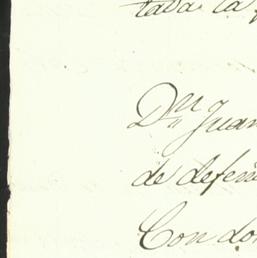 taba la
Dⁿ Juan
de defen
Con do